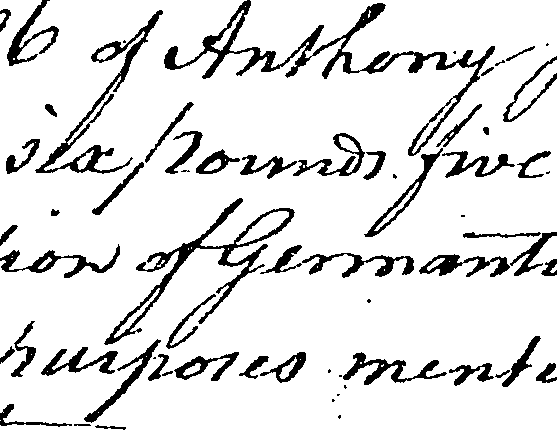 of Anthony
six pounds. five
ion of Germanto
purposes menti